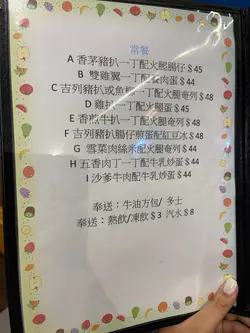 常餐
A 香茅豬扒一丁配火腿腸仔 $ 45
B 雙雞翼一丁配餐肉蛋 $ 44
C 吉列豬扒或魚柳一丁配火腿奄列 $ 48
D 雞扒一丁配火腿蛋 $ 45
E 香煎牛扒一丁配火腿奄列 $ 48
F 吉列豬扒腸仔煎蛋配紅豆冰 $ 48
G 雪菜肉絲米配火腿奄列 $ 44
H 五香肉丁一丁配牛乳炒蛋 $ 44
I 沙爹牛肉配牛乳炒蛋 $ 44
奉送：牛油方包/ 多士
奉送：熱飲/凍飲 $ 3 汽水 $ 8